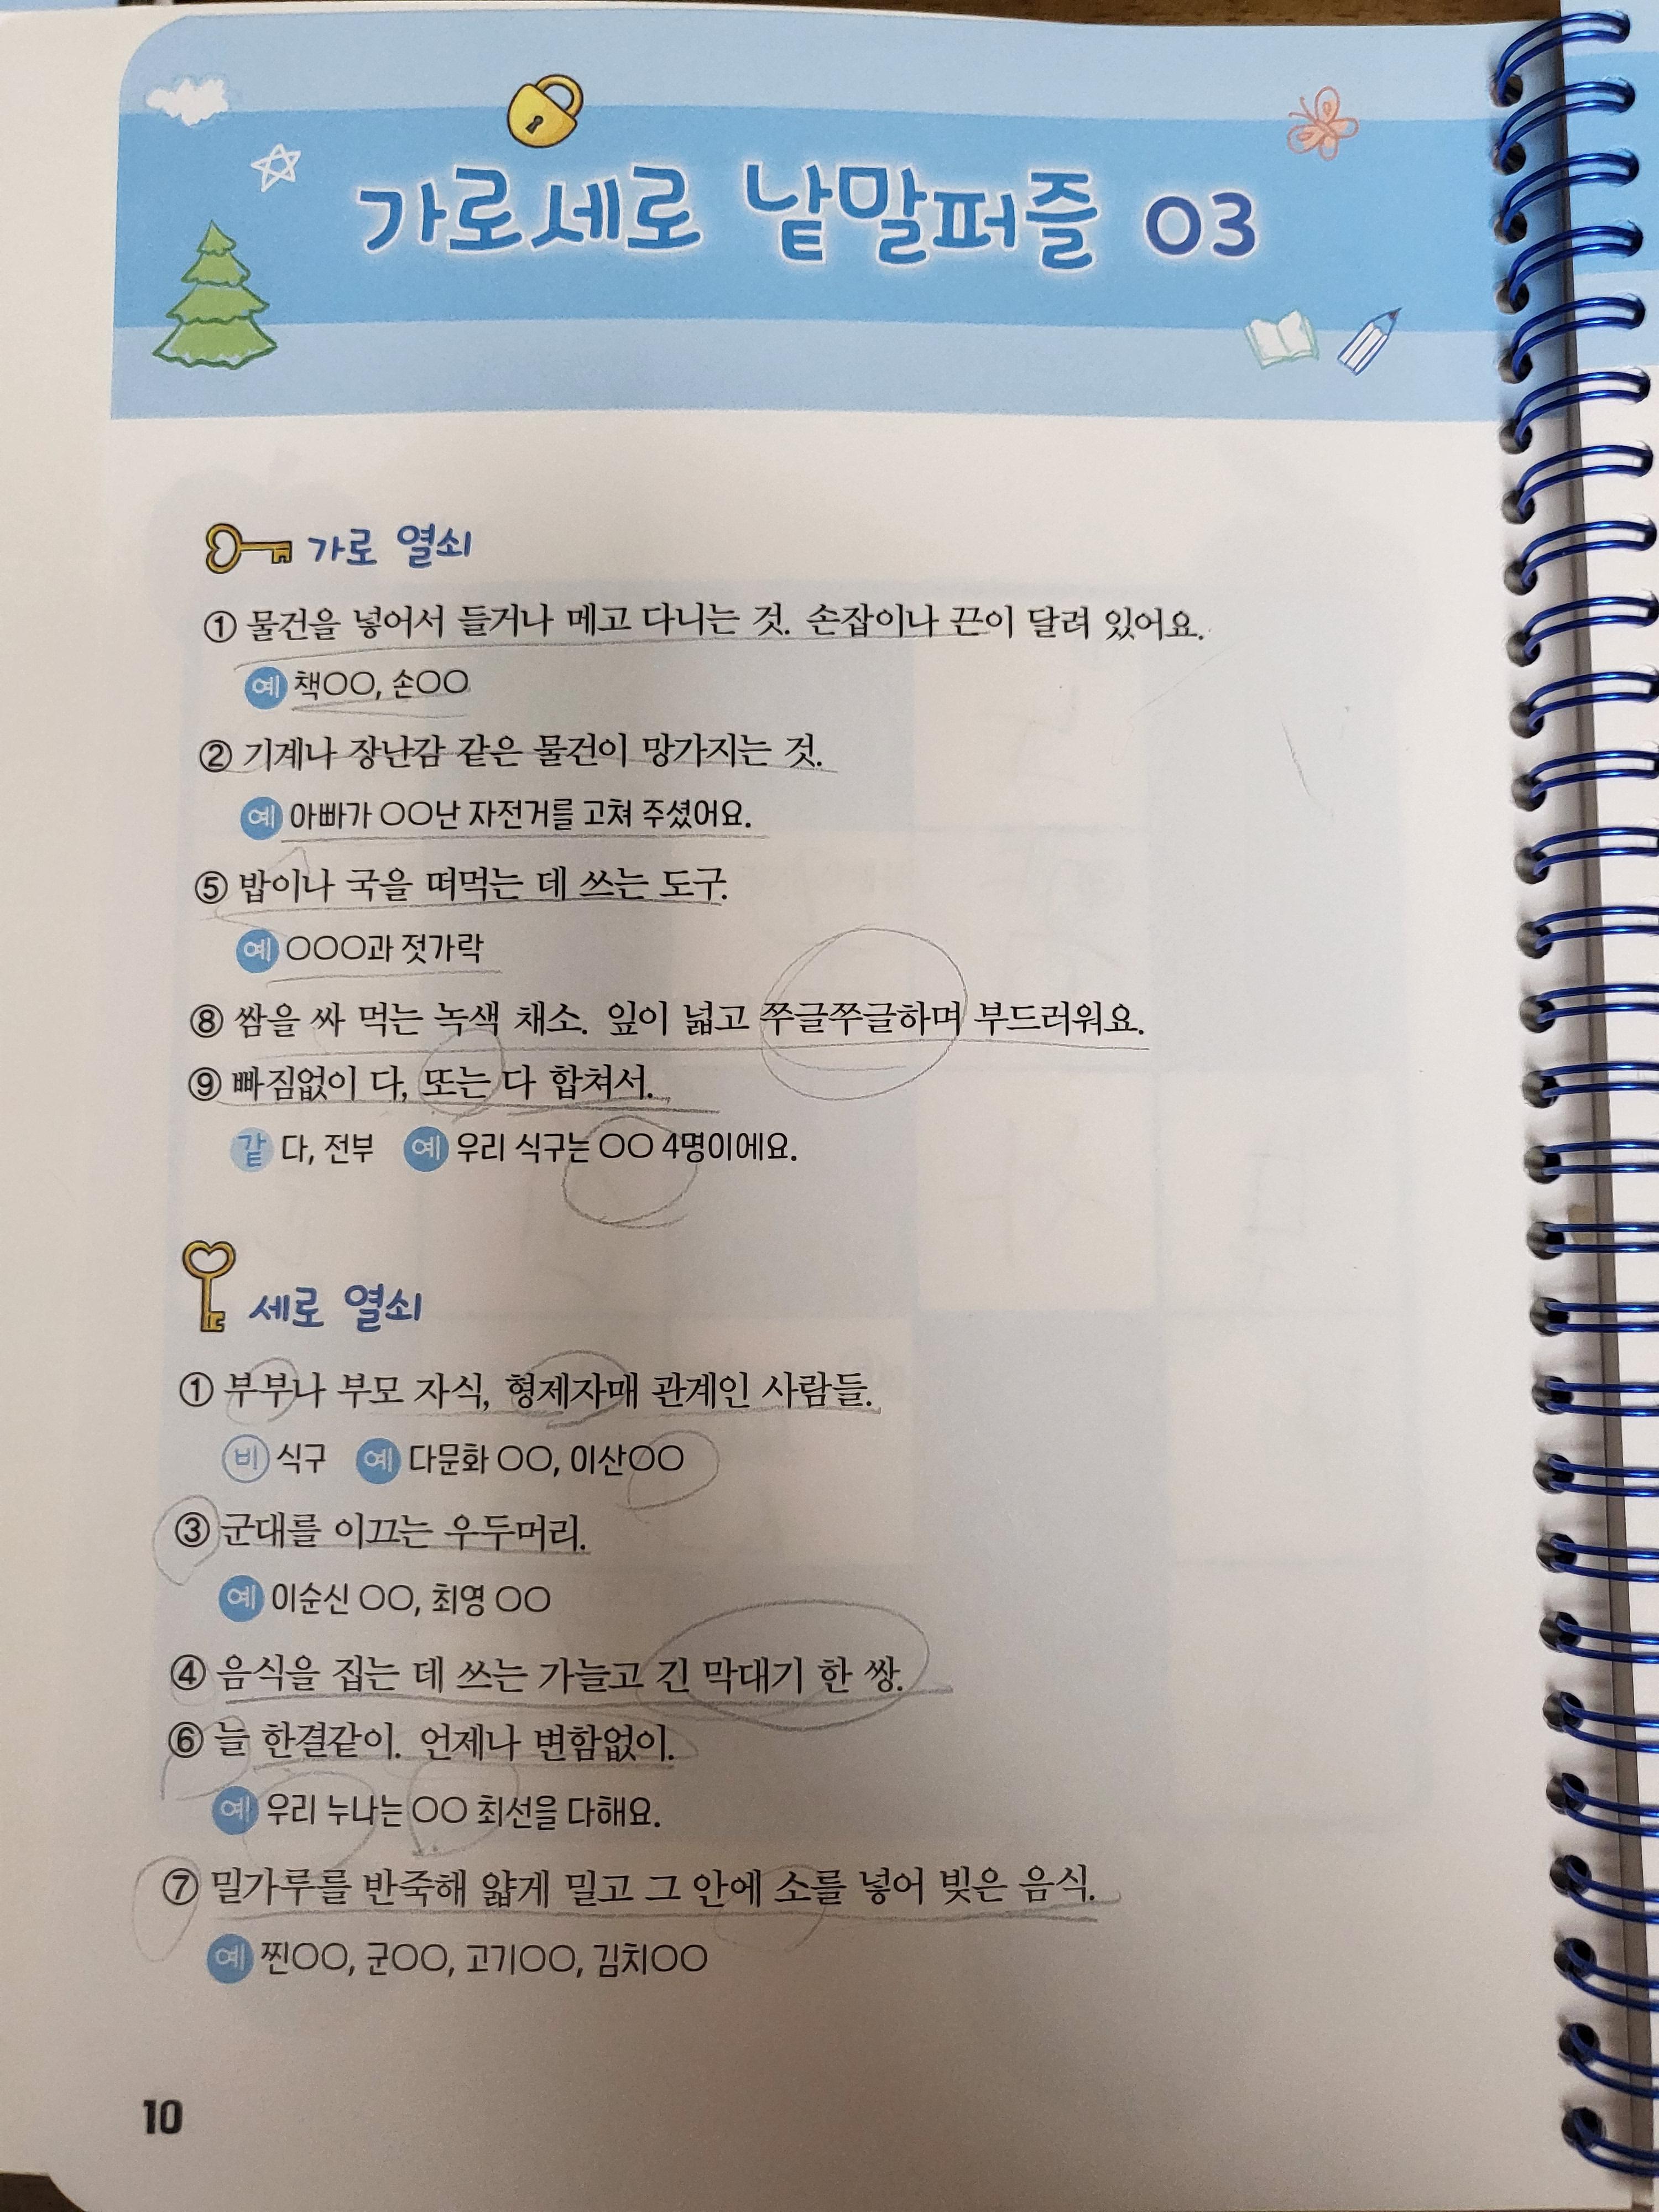 가로세로 낱말퍼즐 03
가로 열쇠
① 물건을 넣어서 들거나 메고 다니는 것. 손잡이나 끈이 달려 있어요.
예 책○○, 손○○
② 기계나 장난감 같은 물건이 망가지는 것.
예 아빠가 ○○난 자전거를 고쳐 주셨어요.
⑤ 밥이나 국을 떠먹는 데 쓰는 도구.
예 ○○○과 젓가락
⑧ 쌈을 싸 먹는 녹색 채소. 잎이 넓고 쭈글쭈글하며 부드러워요.
⑨ 빠짐없이 다, 또는 다 합쳐서.
같 다, 전부 예 우리 식구는 ○○ 4명이에요.
세로 열쇠
① 부부나 부모 자식, 형제자매 관계인 사람들.
비 식구 예 다문화 ○○, 이산○○
③ 군대를 이끄는 우두머리.
예 이순신 ○○, 최영 ○○
④ 음식을 집는 데 쓰는 가늘고 긴 막대기 한 쌍.
⑥ 늘 한결같이. 언제나 변함없이.
예 우리 누나는 ○○ 최선을 다해요.
⑦ 밀가루를 반죽해 얇게 밀고 그 안에 소를 넣어 빚은 음식.
예 찐○○, 군○○, 고기○○, 김치○○
10